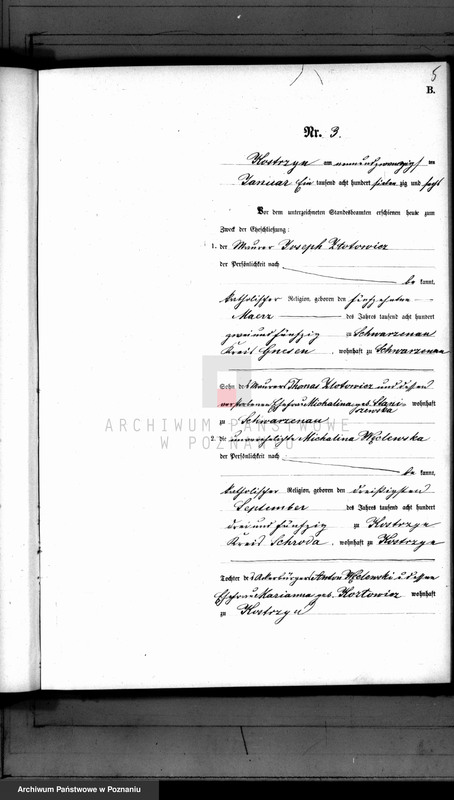 5
B.
Nr. 3.
Kostrzyn am neunundzwanzigsten
Januar Ein tausend acht hundert sieben zig und sechs
Vor dem unterzeichneten Standesbeamten erschienen heute zum
Zweck der Eheschließung:
1. der Maurer Joseph Zlotowicz
der Persönlichkeit nach
be kannt,
katholischer Religion, geboren den fünfzehnten
Maerz des Jahres tausend acht hundert
zwei und fünfzig zu Schwarzenau
Kreis Gnesen, wohnhaft zu Schwarzenau
Sohn des Maurers Thomas Zlotowicz und dessen
verstorbenen Ehefrau Michalina geb. wohnhaft
zu Schwarzenau
ARCHIWUM PAŃSTWOWE
W POZNANIU
2. die unverehelichte Michalina Węclewska
der Persönlichkeit nach
be kannt,
katholischer Religion, geboren den dreißigsten
September des Jahres tausend acht hundert
drei und fünfzig zu Kostrzyn
Kreis Schroda, wohnhaft zu Kostrzyn
Tochter des Ackerbürgers Anton Węclewski u. dessen
Ehefrau Marianna geb. wohnhaft
zu Kostrzyn
Archiwum Państwowe w Poznaniu